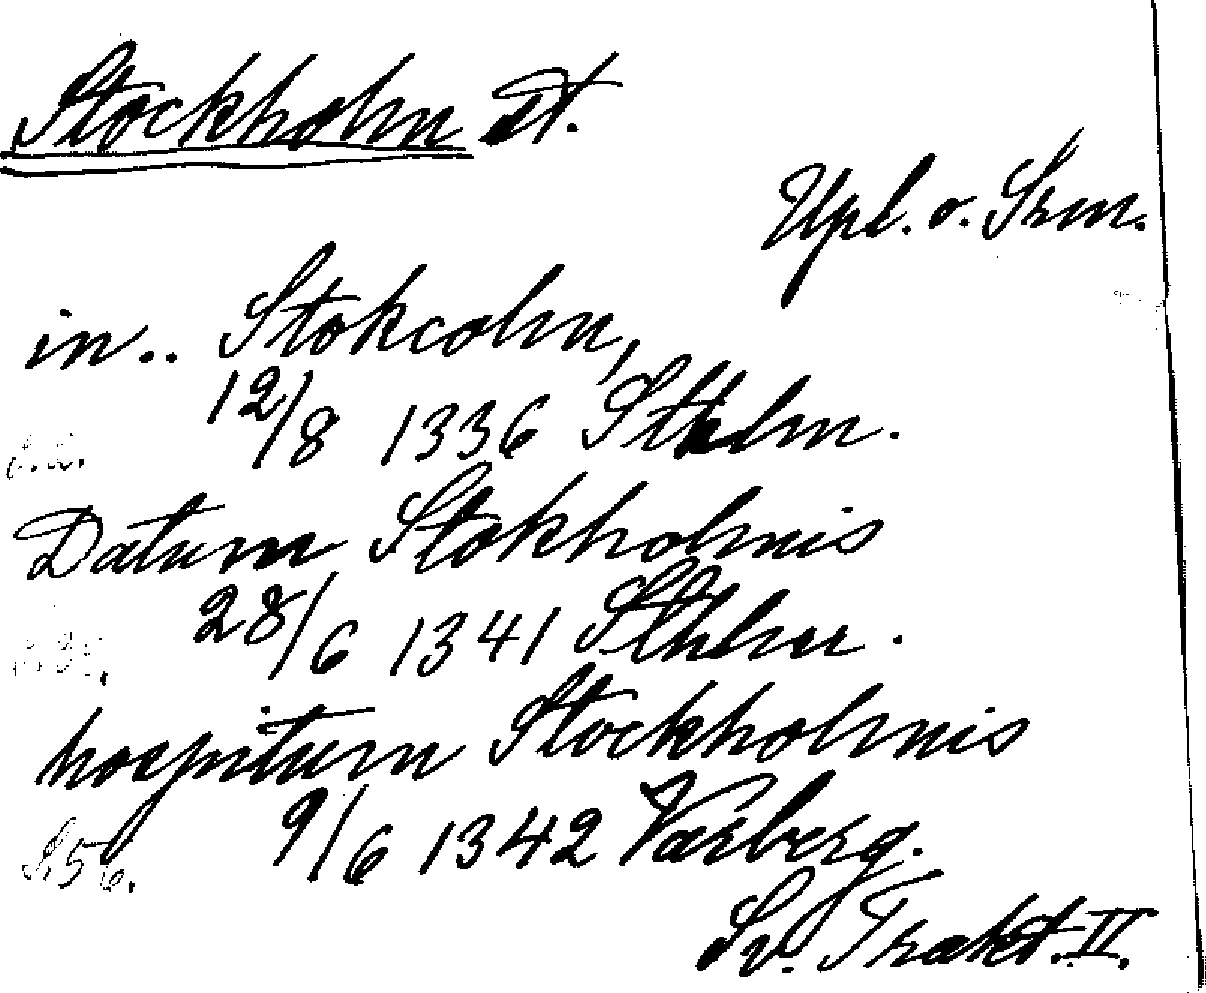 Stockholm st.
Upl. o. Srm.
in.. Stokcolm,
12/8 1336 Sthlm.
Datum Stokholmis
28/6 1341 Sthlm.
hospitum Stockholmis
9/6 1342 Varberg.
S. 56.
Sv. Trakt. II.